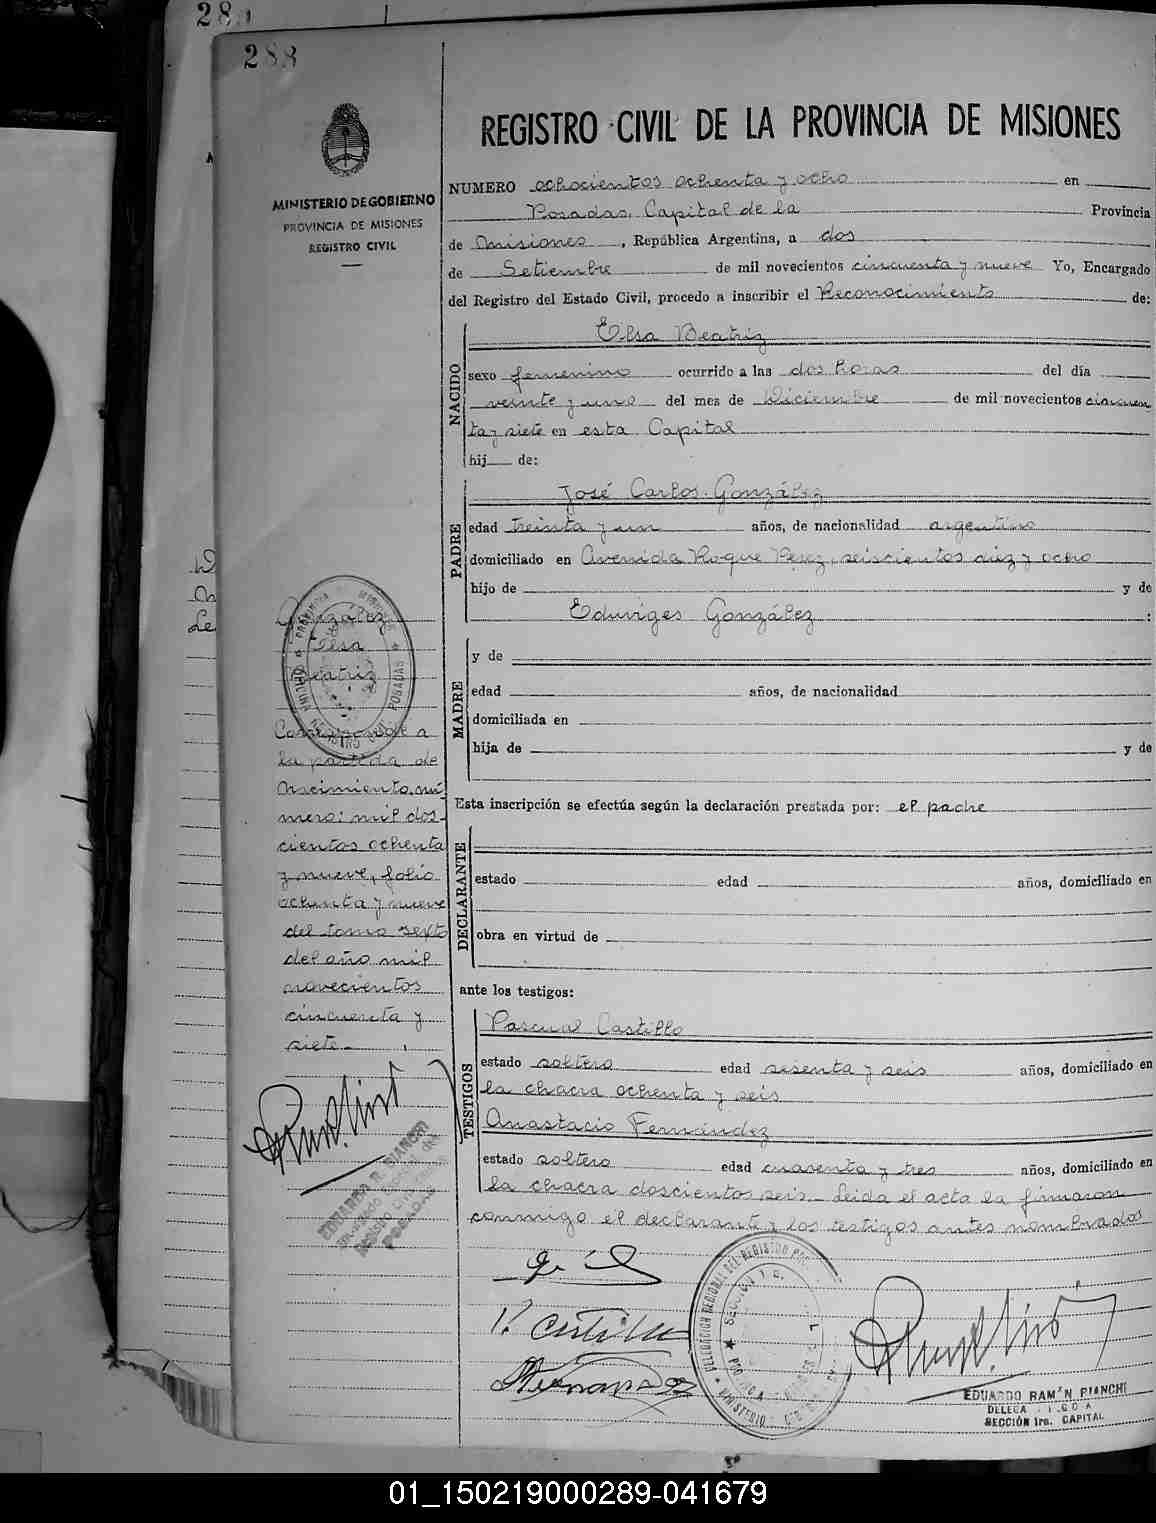 28
288
MINISTERIO DE GOBIERNO
PROVINCIA DE MISIONES
REGISTRO CIVIL
REGISTRO CIVIL DE LA PROVINCIA DE MISIONES
NUMERO ochocientos ochenta y ocho en
Posadas, Capital de la Provincia
de Misiones, República Argentina, a dos
de Setiembre de mil novecientos cincuenta y nueve Yo, Encargado
del Registro del Estado Civil, procedo a inscribir el Reconocimiento de:
NACIDO
Elsa Beatriz
sexo femenino ocurrido a las dos horas del día
veinte y uno del mes de Diciembre de mil novecientos cincuen
ta y siete en esta Capital
hij de:
PADRE
José Carlos González
edad treinta y un años, de nacionalidad argentino
domiciliado en Avenida Roque Perez, seiscientos diez y ocho
hijo de y de
Eduviges González :
MADRE
y de
edad años, de nacionalidad
domiciliada en
hija de y de
Esta inscripción se efectúa según la declaración prestada por: el padre
DECLARANTE
estado edad años, domiciliado en
obra en virtud de
ante los testigos:
TESTIGOS
Pascual Castillo
estado soltero edad sesenta y seis años, domiciliado en
la chacra ochenta y seis
Anastacio Fernández
estado soltero edad cuarenta y tres años, domiciliado en
la chacra doscientos seis. Leida el acta la firmaron
conmigo el declarante y los testigos antes nombrados
González
Elsa
Beatriz
Corresponde a
la partida de
Nacimiento, nú
mero: mil dos-
cientos ochenta
y nueve, folio
ochenta y nueve
del tomo sexto
del año mil
novecientos
cincuenta y
siete.-
EDUARDO R. BIANCHI
POSADAS
P. Castillo
DELEGACION REGIONAL DEL REGISTRO
SECCION 1a.
EDUARDO RAMON BIANCHI
SECCIÓN 1ra. CAPITAL
01_150219000289-041679